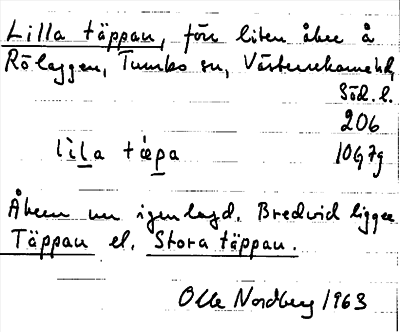 Lilla täppan, förr liten åker å
Röleggen, Tumbo sn, Västerrekarne hd,
Söd. l.
206
lìla tǽpa 10G7g
Åkern nu igenlagd. Bredvid ligger
Täppan el. Stora täppan.
Olle Nordberg 1963